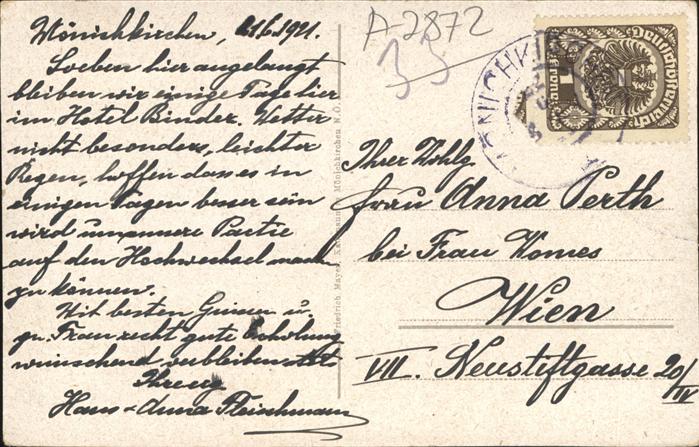 Mönichkirchen, 21.6.1921.
Soeben hier angelangt
bleiben wir einige Tage hier
im Hotel Binder. Wetter
nicht besonders, leichter
Regen, hoffen dass es in
einigen Tagen besser sein
wird um unsere Partie
auf den Hochwechsel machen
zu können.
Mit besten Grüssen u.
gn. Frau recht gute Erholung
wünschend verbleiben stets
Ihre
Hans + Anna Fleischmann
Friedrich Mayer, Mönichkirchen N.Ö.
A-2872
33
MÖNICHKIRCHEN
Deutschösterreich
1 Krone
Ihrer Wohlg.
Frau Anna Perth
bei Frau Komes
Wien
VII. Neustiftgasse 20/IV